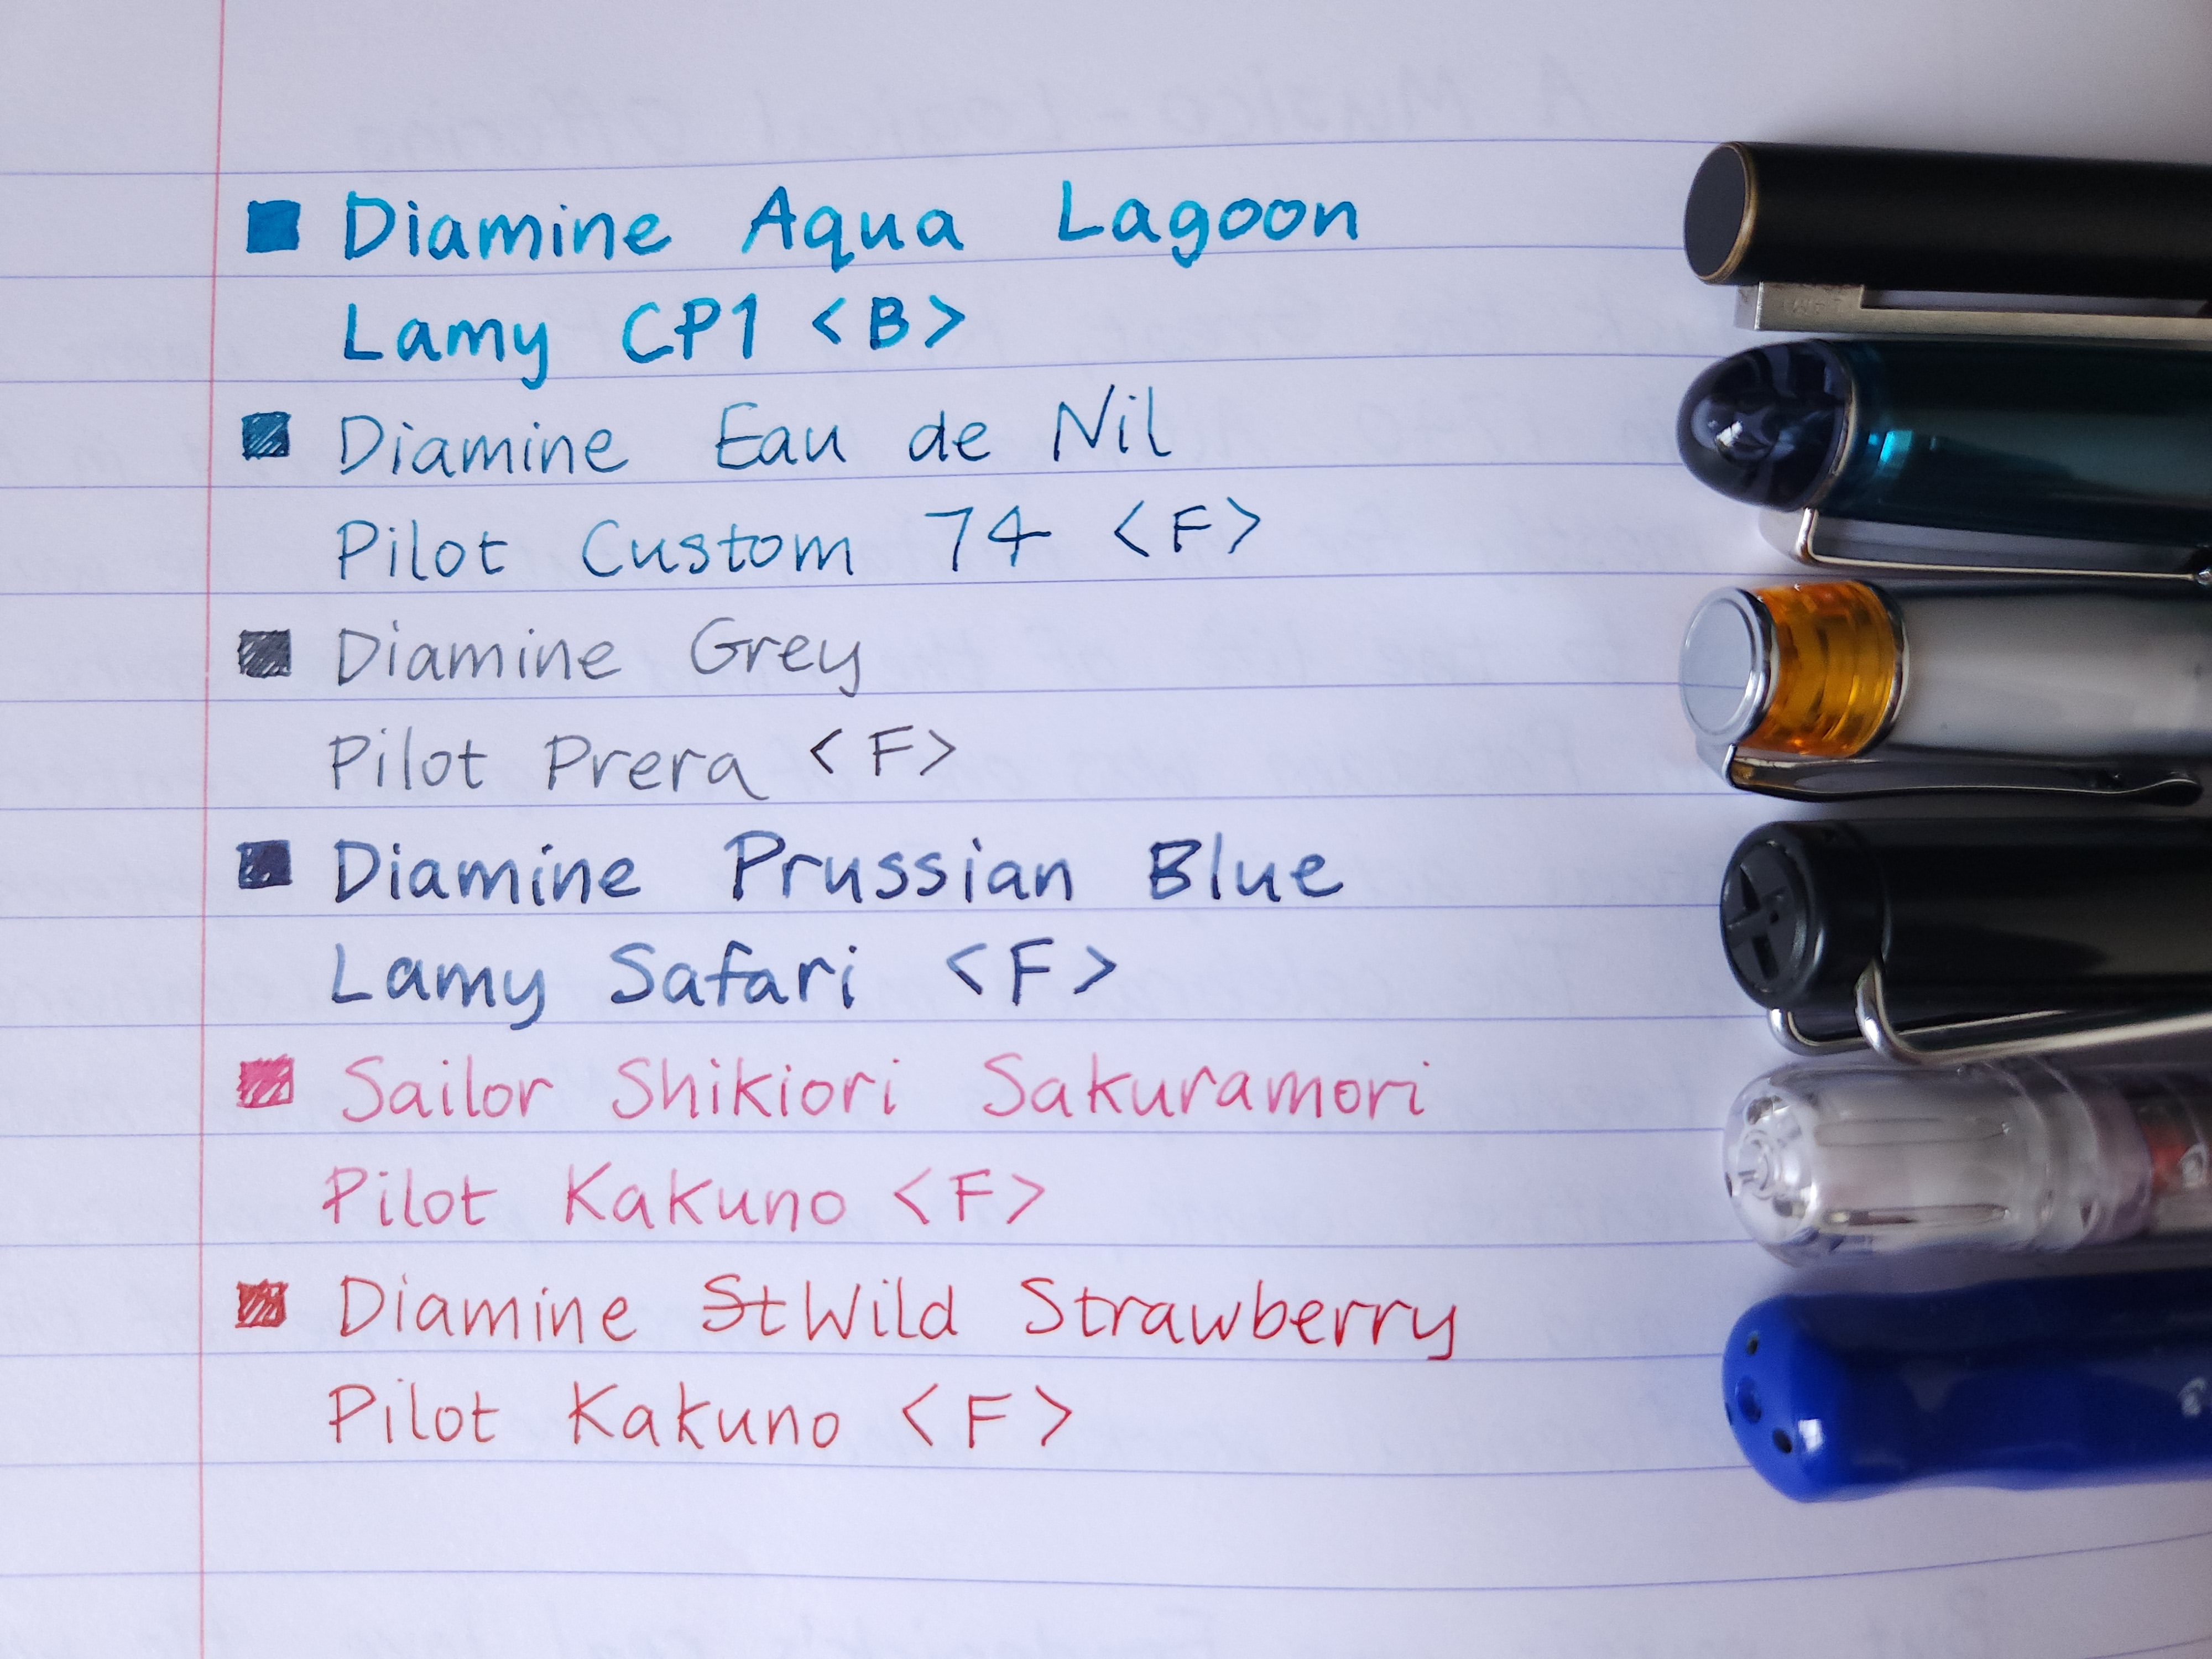 Diamine Aqua Lagoon
Lamy CP1 <B>
Diamine Eau de Nil
Pilot Custom 74 <F>
Diamine Grey
Pilot Prera <F>
Diamine Prussian Blue
Lamy Safari <F>
Sailor Shikiori Sakuramori
Pilot Kakuno <F>
Diamine St Wild Strawberry
Pilot Kakuno <F>